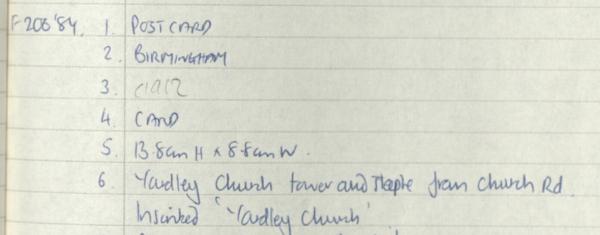 F206'84. 1. POSTCARD
2. BIRMINGHAM
3. c1912
4. CARD
5. 13.8cm H x 8.8cm W.
6. Yardley Church tower and steeple from Church Rd.
Inscribed 'Yardley Church'